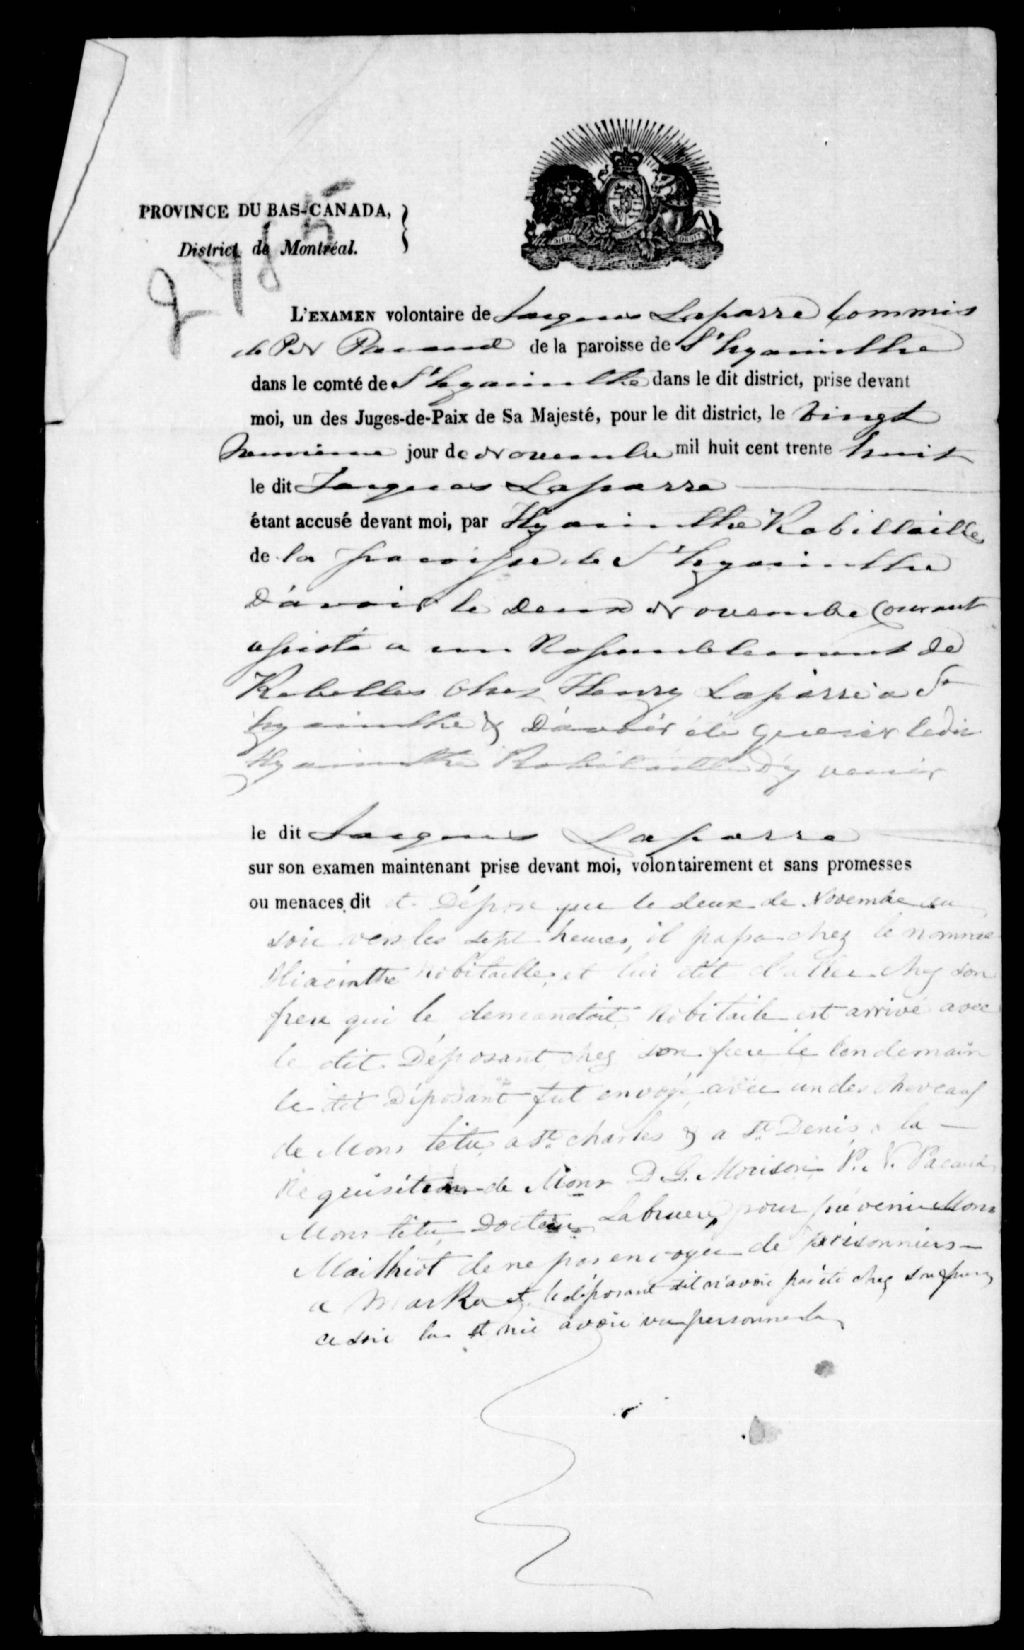 PROVINCE DU BAS-CANADA,
District de Montréal.
2785
L'EXAMEN volontaire de Jacques Laparre Commis
de P N Pacaud de la paroisse de St hyacinthe
dans le comté de St hyacinthe dans le dit district, prise devant
moi, un des Juges-de-Paix de Sa Majesté, pour le dit district, le vingt
neuvieme jour de Novembre mil huit cent trente huit
le dit Jacques Laparre
étant accusé devant moi, par Hyacinthe Robillaille
de la paroisse de St hyacinthe
D'avoir le deux Novembre Courant
assisté a un Rassemblement de
Rebelles chez Henry Laparre a St
hyacinthe & D'avoir été querir ledit
Hyacinthe Robillaille d'y venir
le dit Jacques Laparre
sur son examen maintenant prise devant moi, volontairement et sans promesses
ou menaces, dit et Dépose que le deux de Novembre au
soir vers les sept heures, il passa chez le nommé
Hiacinthe Robitaille, et lui dit d'aller chez son
frere qui le demandoit Robitaile est arrivé avec
le dit Déposant chez son frere le lendemain
le dit Déposant fut envoyé avec un des cheveaux
de Mons têtu a St charles & a St Denis a la
Requisition de Monr D. G. Morison, P. N. Pacaud
Mons têtu Docteur Labruere pour prévenir Mons
Mailhiot de ne pas envoyer de prisonniers
a et le déposant dit n'avoir pas été chez son frere
ce soir la et nie avoir vu personne la